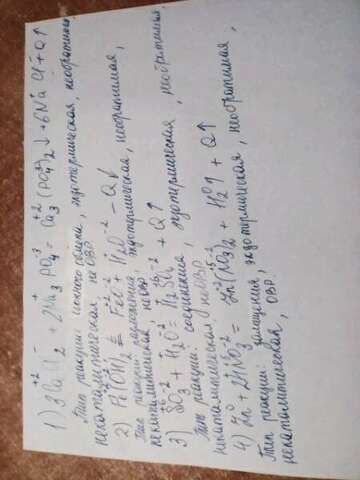 1) 3CaCl₂ + 2Na₃PO₄ = Ca₃(PO₄)₂↓ + 6NaCl + Q↑
Тип реакции: ионного обмена, экзотермическая, необратимая,
некаталитическая, не ОВР.
2) Fe(OH)₂ = FeO + H₂O - Q↓
Тип реакции: разложения, эндотермическая, необратимая,
некаталитическая, не ОВР.
3) SO₃ + H₂O = H₂SO₄ + Q↑
Тип реакции: соединения, экзотермическая, необратимая,
некаталитическая, не ОВР.
4) Zn + 2HNO₃ = Zn(NO₃)₂ + H₂↑ + Q↑
Тип реакции: замещения, экзотермическая, необратимая,
некаталитическая, ОВР.